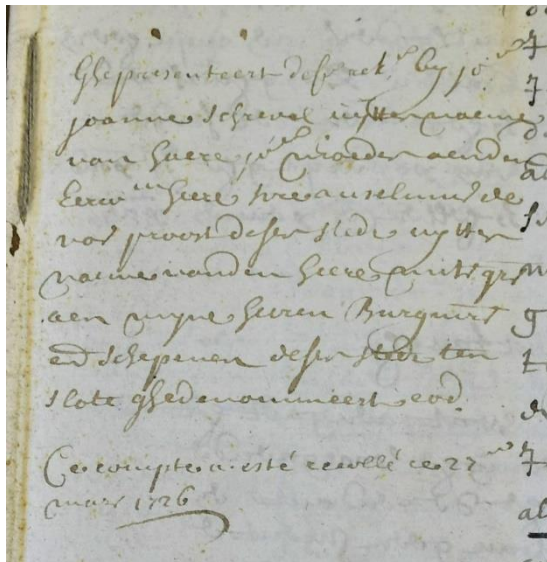 Ghepresenteert dese rek. by jo.e
joanne Schrevel uytter naeme
van haere jo.e moeder aenden
Eerw.en heere hre anselmus de
vos proost deser stede uytter
naeme vanden heere mitsgrs
aen myne heeren Burgmrs
end schepenen deser stede ten
slote ghedenommeert eod.
Ce compte a esté recollé ce 27.me
mars 1726